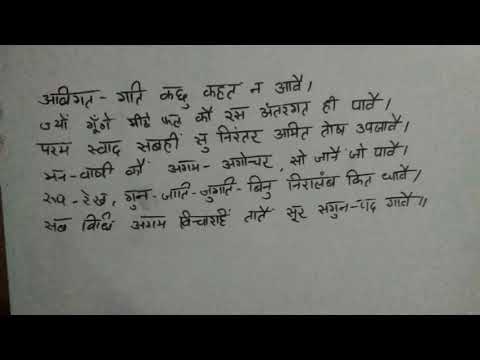 अविगत - गति कछु कहत न आवै।
ज्यों गूँगे मीठे फल कौ रस अंतरगत ही पावै।
परम स्वाद सबही सु निरंतर अमित तोष उपजावै।
मन - वाणी कौं अगम - अगोचर, सो जानैं जो पावै।
रूप - रेख, गुन - जाति - जुगति - बिनु निरालंब कित धावै।
सब विधि अगम विचारहिं तातैं सूर सगुन - पद गावै॥